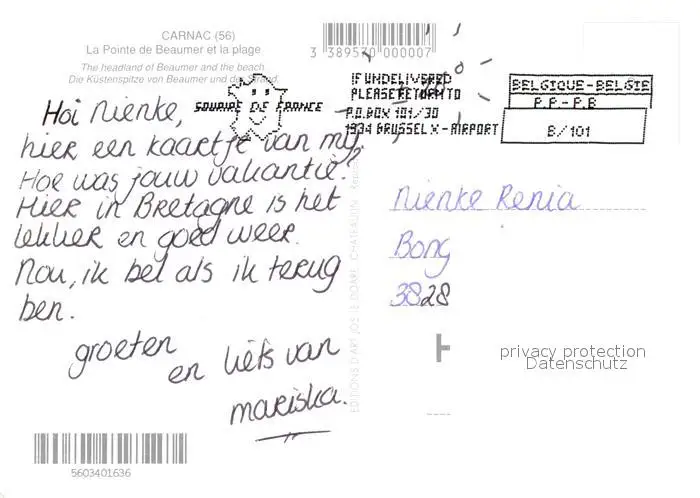 CARNAC (56)
La Pointe de Beaumer et la plage
The headland of Beaumer and the beach
Die Küstenspitze von Beaumer und der Strand
3 389570 000007
Hoi Nienke,
hier een kaartje van mij,
Hoe was jouw vakantie?
Hier in Bretagne is het
lekker en goed weer.
Nou, ik bel als ik terug
ben.
groeten
en liefs van
Mariska.
5603401636
SOURIRE DE FRANCE
IF UNDELIVERED
PLEASE RETURN TO
P.O.BOX 101/30
1934 BRUSSEL X - AIRPORT
BELGIQUE-BELGIE
P.P.-P.B
B/101
EDITIONS D'ART JOS LE DOARE CHATEAULIN
Nienke Renia
Bong
3828
privacy protection
Datenschutz